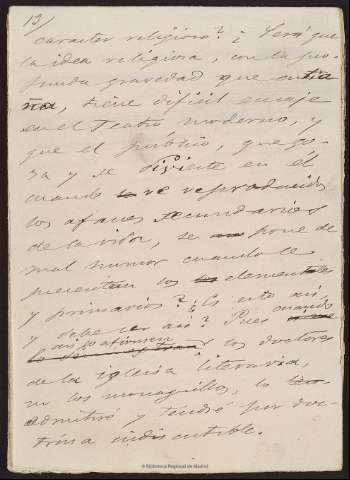 13/
caracter religioso? ¿Será que
la idea religiosa, con la pro-
funda gravedad que entra
ña, tiene difícil encaje
en el Teatro moderno, y
que el público, que go-
za y se divierte en él
cuando ve reproducidos
los afanes secundarios
de la vida, se pone de
mal humor cuando le
presentan los elementales
y primarios? ¿Es esto así,
y debe ser así? Pues cuando
así lo afirmen
los doctores
de la iglesia literaria,
no los monaguillos, lo
admitiré y tendré por doc-
trina indiscutible.
© Biblioteca Regional de Madrid